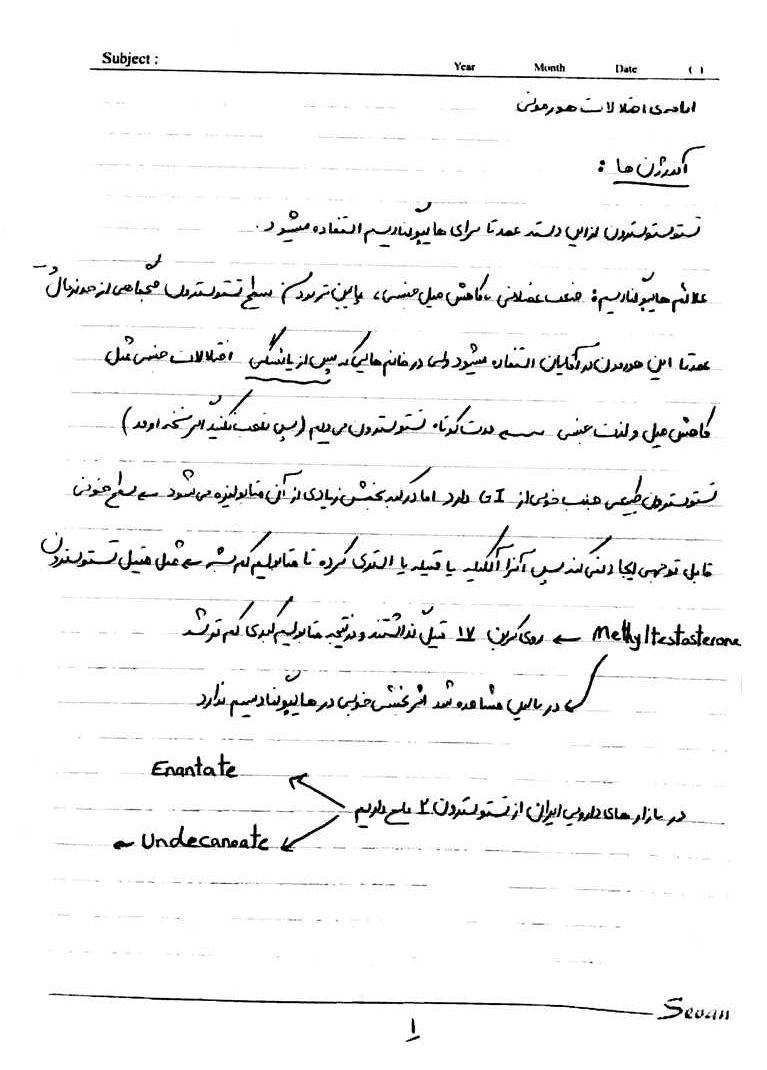 Subject :
Year Month Date ( )
ادامه‌ی اختلالات هورمونی
آندروژن ها :
تستوسترون از این دسته عمدتا برای هایپوگنادیسم استفاده میشود.
علائم هایپوگنادیسم: ضعف عضلانی، کاهش میل جنسی، پایین تر بودن سطح تستوسترون صبحگاهی از حد نرمال
عمدتا این هورمون در آقایان استفاده میشود ولی در خانم هایی که پس از یائسگی اختلالات جنسی مثل
کاهش میل و لذت جنسی ← مدت کوتاه تستوسترون می دیم (پس تعجب نکنید اگر نسخه اومد)
تستوسترون طبیعی جذب خوبی از GI دارد اما در کبد بخش زیادی از آن متابولیزه می شود ← سطح خونی
قابل توجهی ایجاد نمی کند پس آنرا آلکیله یا متیله یا استری کرده تا متابولیسم کم بشه ← مثل متیل تستوسترون
Methyltestosterone ← روی کربن ۱۷ متیل گذاشتند و در نتیجه متابولیسم کبدی کم تر شد
در بالین مشاهده شد اثربخشی خوبی در هایپوگنادیسم ندارد
Enantate
در بازار های دارویی ایران از تستوسترون ۲ ملح داریم
Undecanoate
Sevan
1